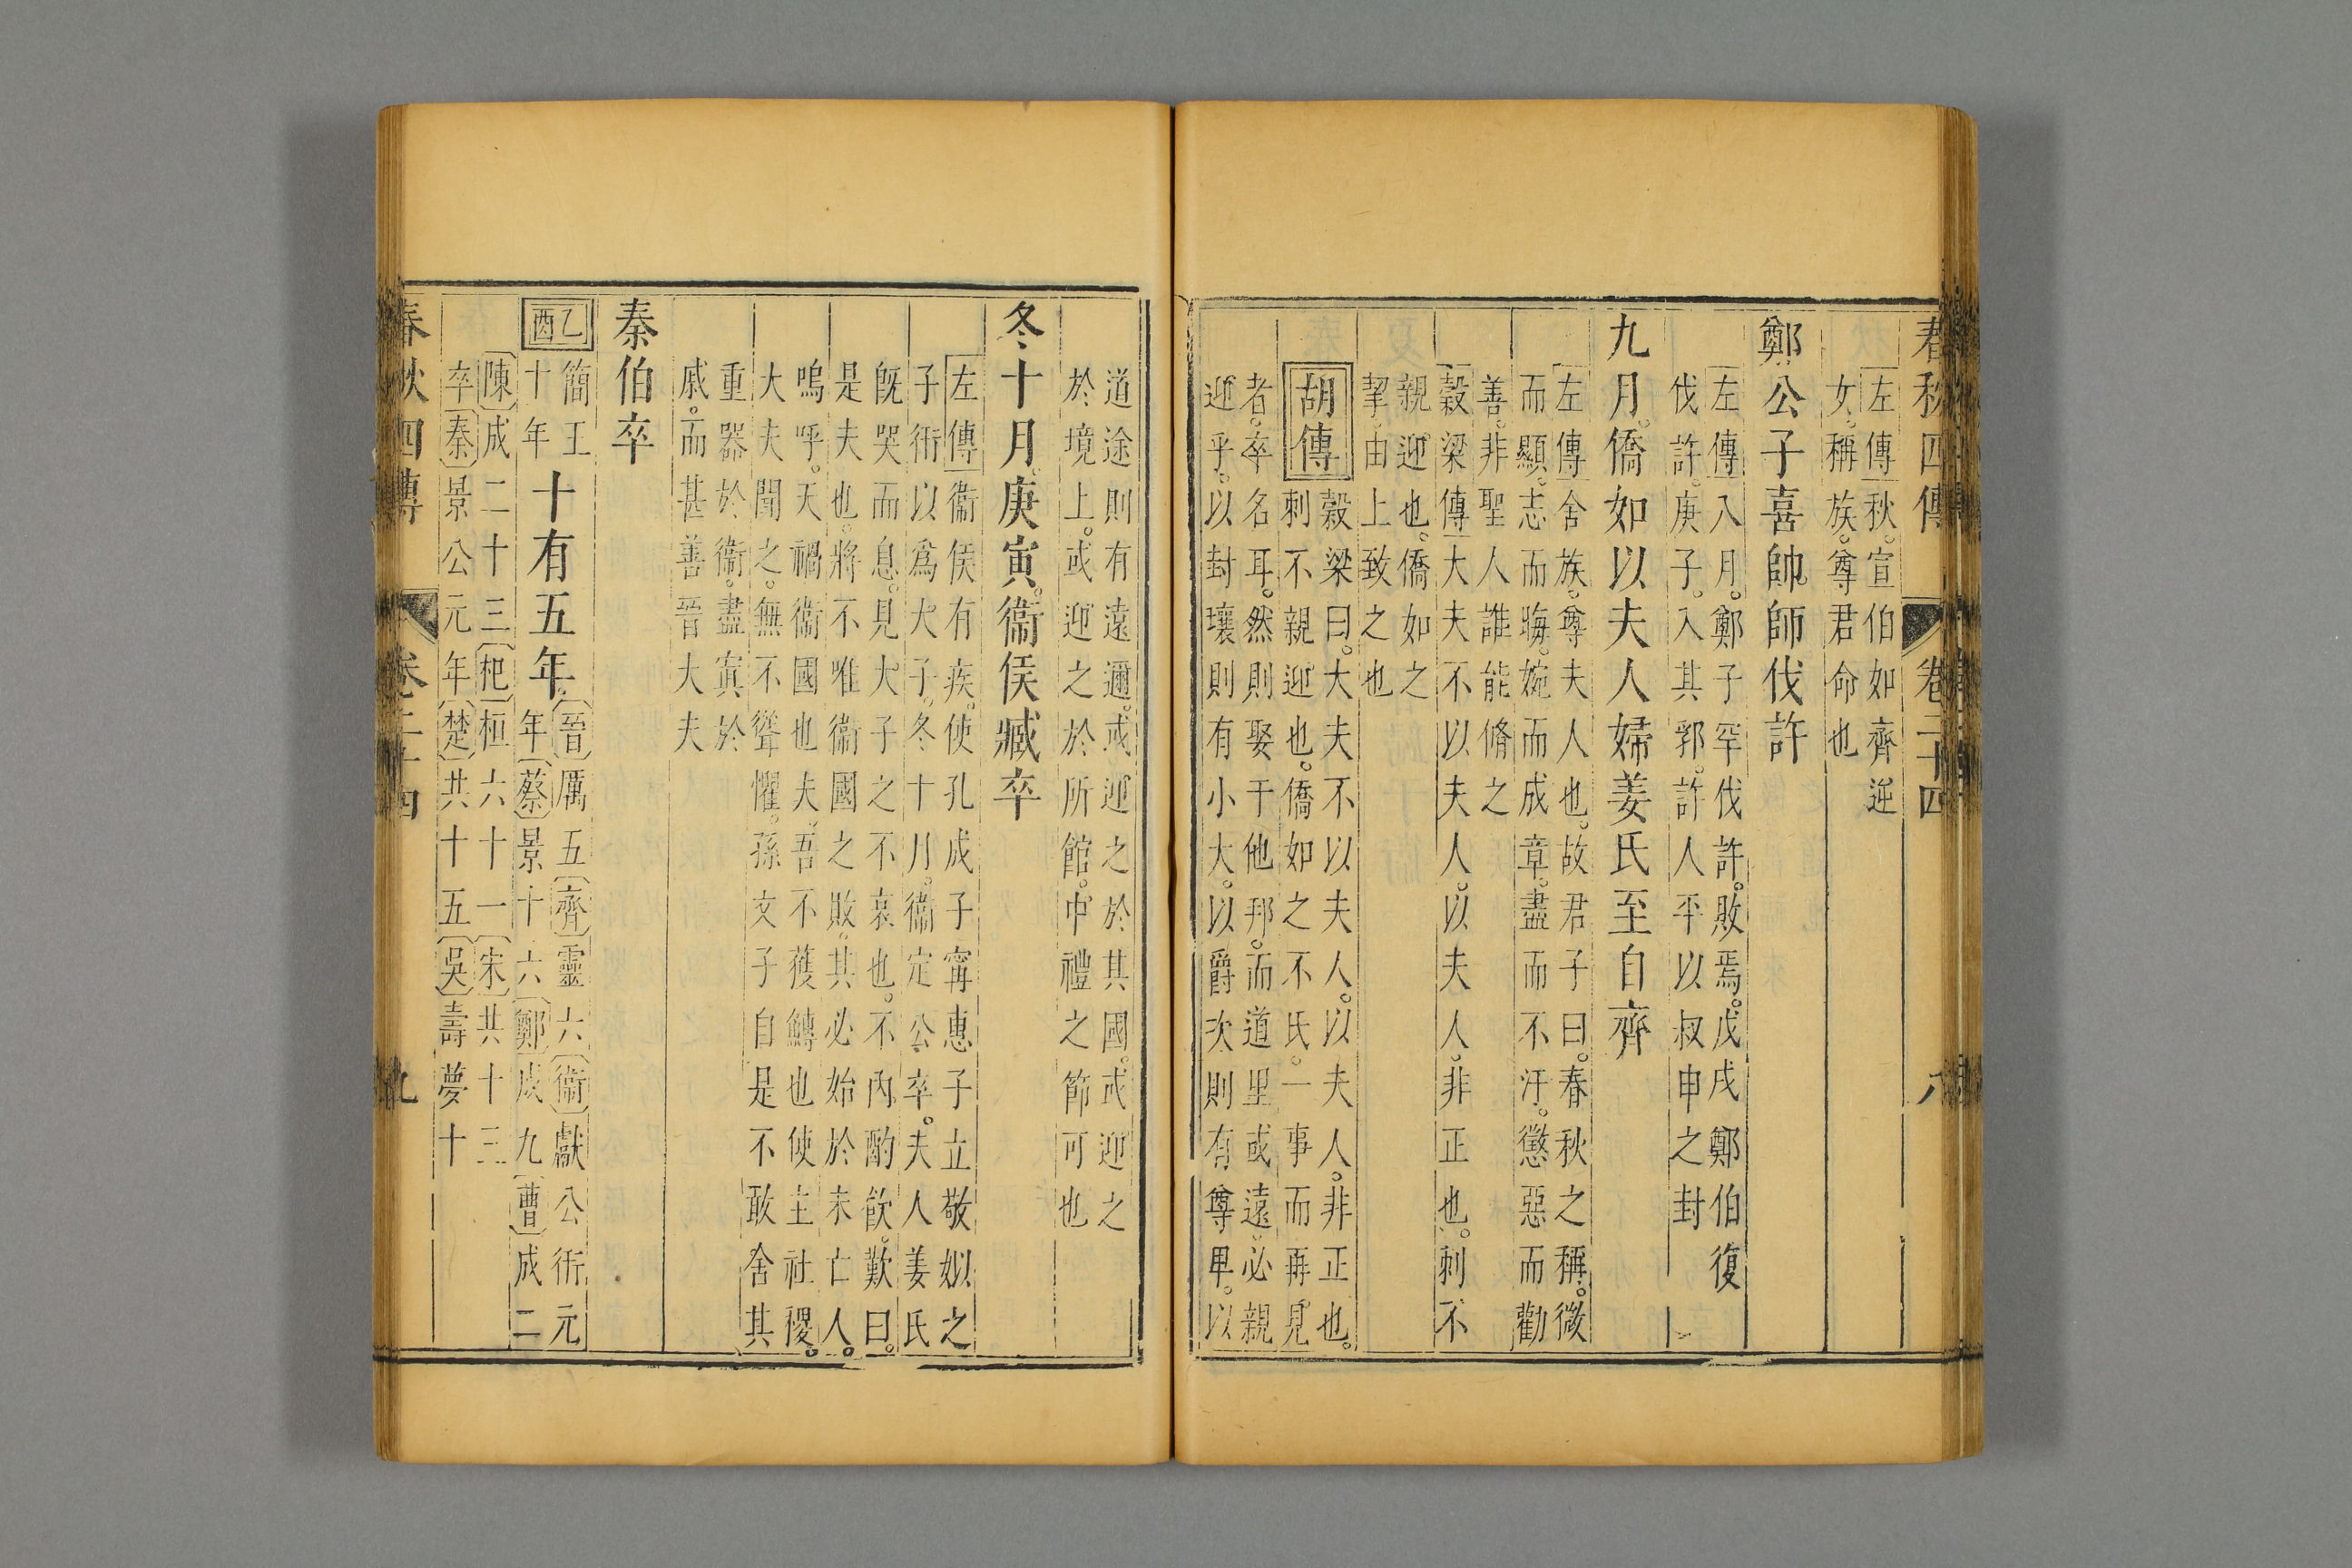 春秋四傳 卷二十四 八
左傳秋。宣伯如齊逆
女。稱族。尊君命也
鄭公子喜帥師伐許
左傳八月。鄭子罕伐許。敗焉。戊戌鄭伯復
伐許。庚子。入其郛。許人平以叔申之封
九月。僑如以夫人婦姜氏至自齊
左傳舍族。尊夫人也。故君子曰。春秋之稱。微
而顯。志而晦。婉而成章。盡而不汙。懲惡而勸
善。非聖人誰能脩之
穀梁傳大夫不以夫人。以夫人。非正也。刺不
親迎也。僑如之
挈。由上致之也
胡傳穀梁曰。大夫不以夫人。以夫人。非正也。
刺不親迎也。僑如之不氏。一事而再見
者。卒名耳。然則娶于他邦。而道里或遠。必親
迎乎。以封壤則有小大。以爵次則有尊卑。以
道途則有遠邇。或迎之於其國。或迎之
於境上。或迎之於所館。中禮之節可也
冬十月。庚寅。衞侯臧卒
左傳衞侯有疾。使孔成子甯惠子立敬姒之
子衎以爲大子。冬十月。衞定公卒。夫人姜氏
旣哭而息。見大子之不哀也。不內酌飮。歎曰。
是夫也。將不唯衞國之敗。其必始於未亡人。
嗚呼。天禍衞國也夫。吾不獲鱄也使主社稷。
大夫聞之。無不聳懼。孫文子自是不敢舍其
重器於衞。盡寘於
戚。而甚善晉大夫
秦伯卒
乙酉 簡王
十年 十有五年。 晉厲五齊靈六衞獻公衎元
年蔡景十六鄭成九曹成二
陳成二十三杞桓六十一宋共十三
卒秦景公元年楚共十五吳壽夢十
春秋四傳 卷二十四 九